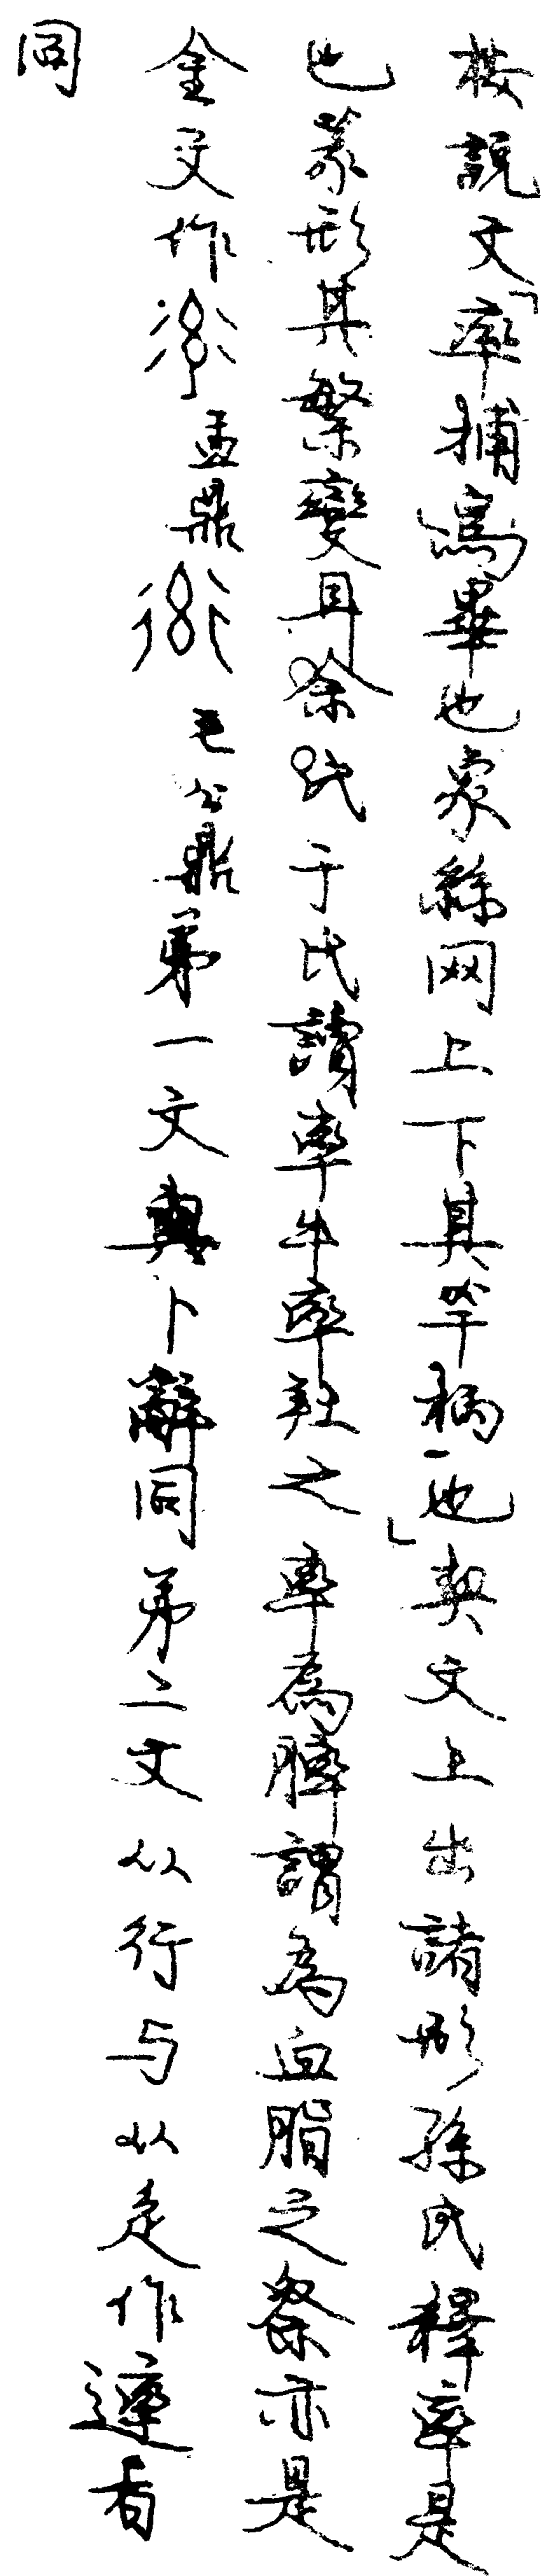 按說文「率捕鳥畢也象絲网上下其竿柄也」契文上出諸形孫氏釋率是
也篆形其繁變耳余氏于氏讀率牛率羊之率爲膟謂為血脂之祭亦是
金文作盂鼎毛公鼎弟一文與卜辭同弟二文从行与从辵作達者
同